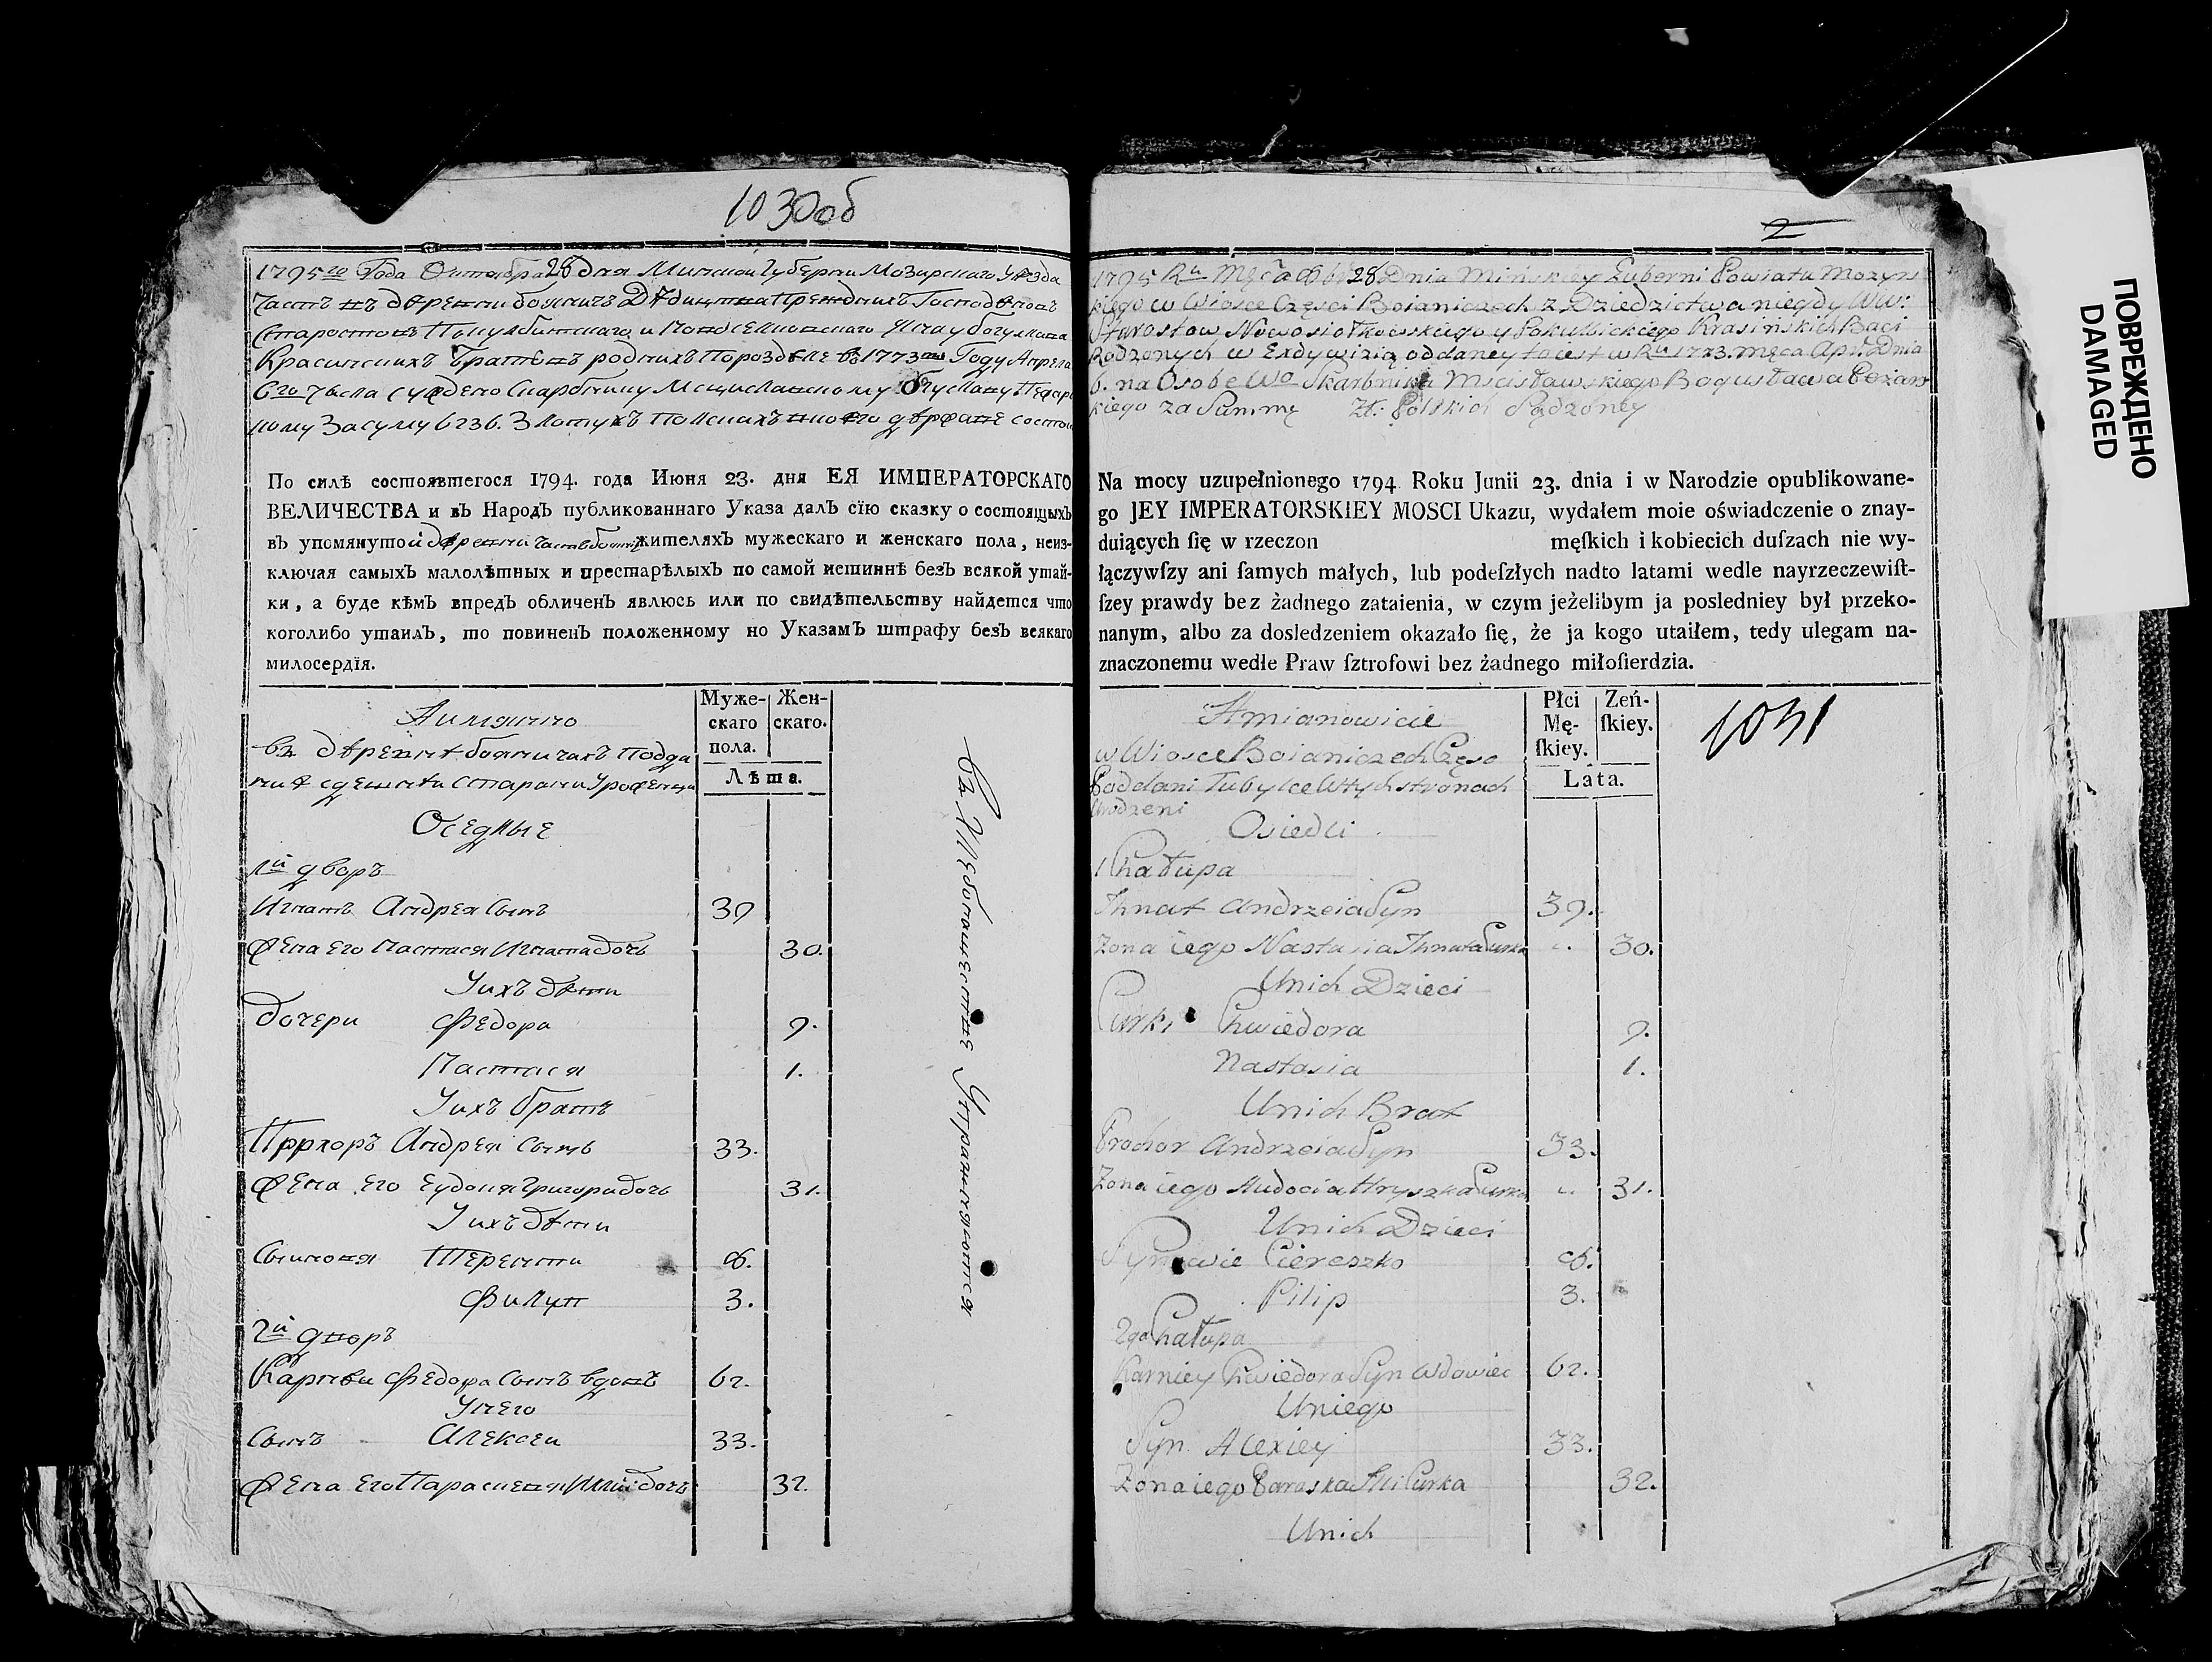 1030об
1795го Года Октября 28 дня Минской Губерни Мозирскаго Уезда
часть въ деревни Бояничъ Дедицтва Преждних Господъ
Старостовъ и
Красинских Братевъ родних Поразделе в 1773м Году Апреля
6го числа суждено Скарбнику Мсциславскому Богуславу
за суму 6236. Злотухъ Полскихъ
По силѣ состоявшегося 1794. года Июня 23. дня ЕЯ ИМПЕРАТОРСКАГО
ВЕЛИЧЕСТВА и вЪ НародЪ публикованнаго Указа далЪ сїю сказку о состоящыхЪ
вЪ упомянутой деревни часть жителяхЪ мужескаго и женскаго пола, неиз-
ключая самыхЪ малолѣтных и престарѣлыхЪ по самой истиннѣ безЪ всякой утай-
ки, а буде кѣмЪ впредЪ обличенЪ явлюсь или по свидѣтельству найдется что
коголибо утаилЪ, то повиненЪ положенному но УказамЪ штрафу безЪ всякаго
милосердїя.
Муже- Жен-
скаго скаго.
пола.
Лѣта.
Аимянно
въ деревне Бояничах Подда
не
Оседлые
1й дворъ
Игнатъ Андрея Сынъ 39
Жена Его Настася Игната дочь 30.
У ихъ дети
Дочери Федора 9.
Настася 1.
У ихъ братъ
Прохоръ Андрея Сынъ 33.
Жена Его Еудокия Григора дочь 31.
У ихъ дети
Сыновя Теренти 8.
Филип 3.
2й дворъ
Карней Федора Сынъ вдовъ 62.
У него
Сынъ Алексеи 33.
Жена Его Параскевя Илии дочь 32.
2
1795 Ru Męca 8br 28 Dnia Minskiey Guberni Powiatu Mozyrs
kiego w Wiosce Części Boianiczech z Dziedzictwa niegdy WW:
Starostow Nowosiołkowskiego y Pokulbickiego Krasińskich Braci
Rodzonych w Exdywizią oddaney to iest w Ru 1773. męca Apr: Dnia
6. na Osobe Wo Skarbnika Mscisławskiego Bogusława
kiego za Summę zł: Polskich Sądzoney
Na mocy uzupełnionego 1794 Roku Junii 23. dnia i w Narodzie opublikowane-
go JEY IMPERATORSKIEY MOSCI Ukazu, wydałem moie oświadczenie o znay-
duiących ſię w rzeczon męſkich i kobiecich duſzach nie wy-
łączywſzy ani ſamych małych, lub podeſzłych nadto latami wedle nayrzeczewiſt-
ſzey prawdy bez żadnego zataienia, w czym jeżelibym ja posledniey był przeko-
nanym, albo za dosledzeniem okazało ſię, że ja kogo utaiłem, tedy ulegam na-
znaczonemu wedłe Praw ſztrofowi bez żadnego miłoſierdzia.
Płci Zeń-
Mę- ſkiey.
ſkiey.
Lata.
1031
A mianowicie
w Wiosce Boianiczech Częsc
Poddani Tubylce W tych stronach
Urodzeni
Osiedli
1 Chałupa
Ihnat Andrzeia Syn 39.
Zona iego Nastasia Ihnata Curka 30.
U nich Dzieci
Curki Chwiedora 9.
Nastasia 1.
U nich Brat
Prochor Andrzeia Syn 33.
Zona iego Audocia Hryszka Curka 31.
U nich Dzieci
Synowie Ciereszko 8.
Pilip 3.
2ga Chałupa
Karniey Chwiedora Syn Wdowiec 62.
U niego
Syn Alexiey 33.
Zona iego Paraska Ilii Curka 32.
U nich
ПОВРЕЖДЕНО
DAMAGED